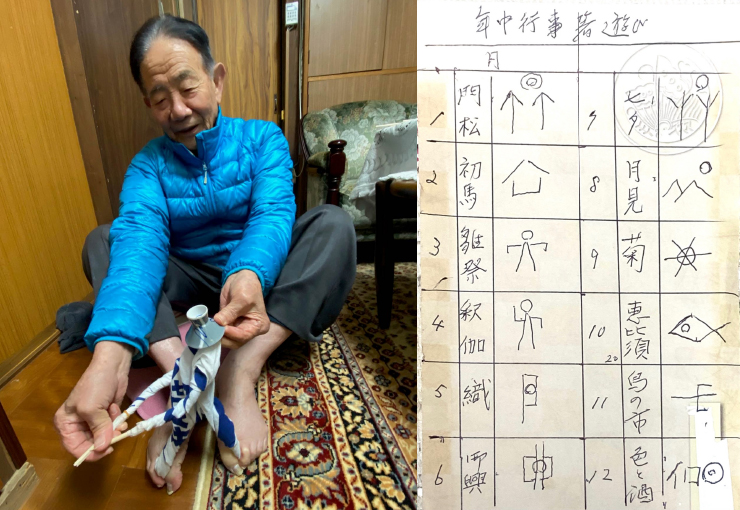 年中行事 箸遊び
月
1 門松 7 七夕
2 初馬 8 月見
3 雛祭 9 菊
4 釈伽 10 20 恵比須
5 織 11 鳥の市
6 御興 12 色と酒